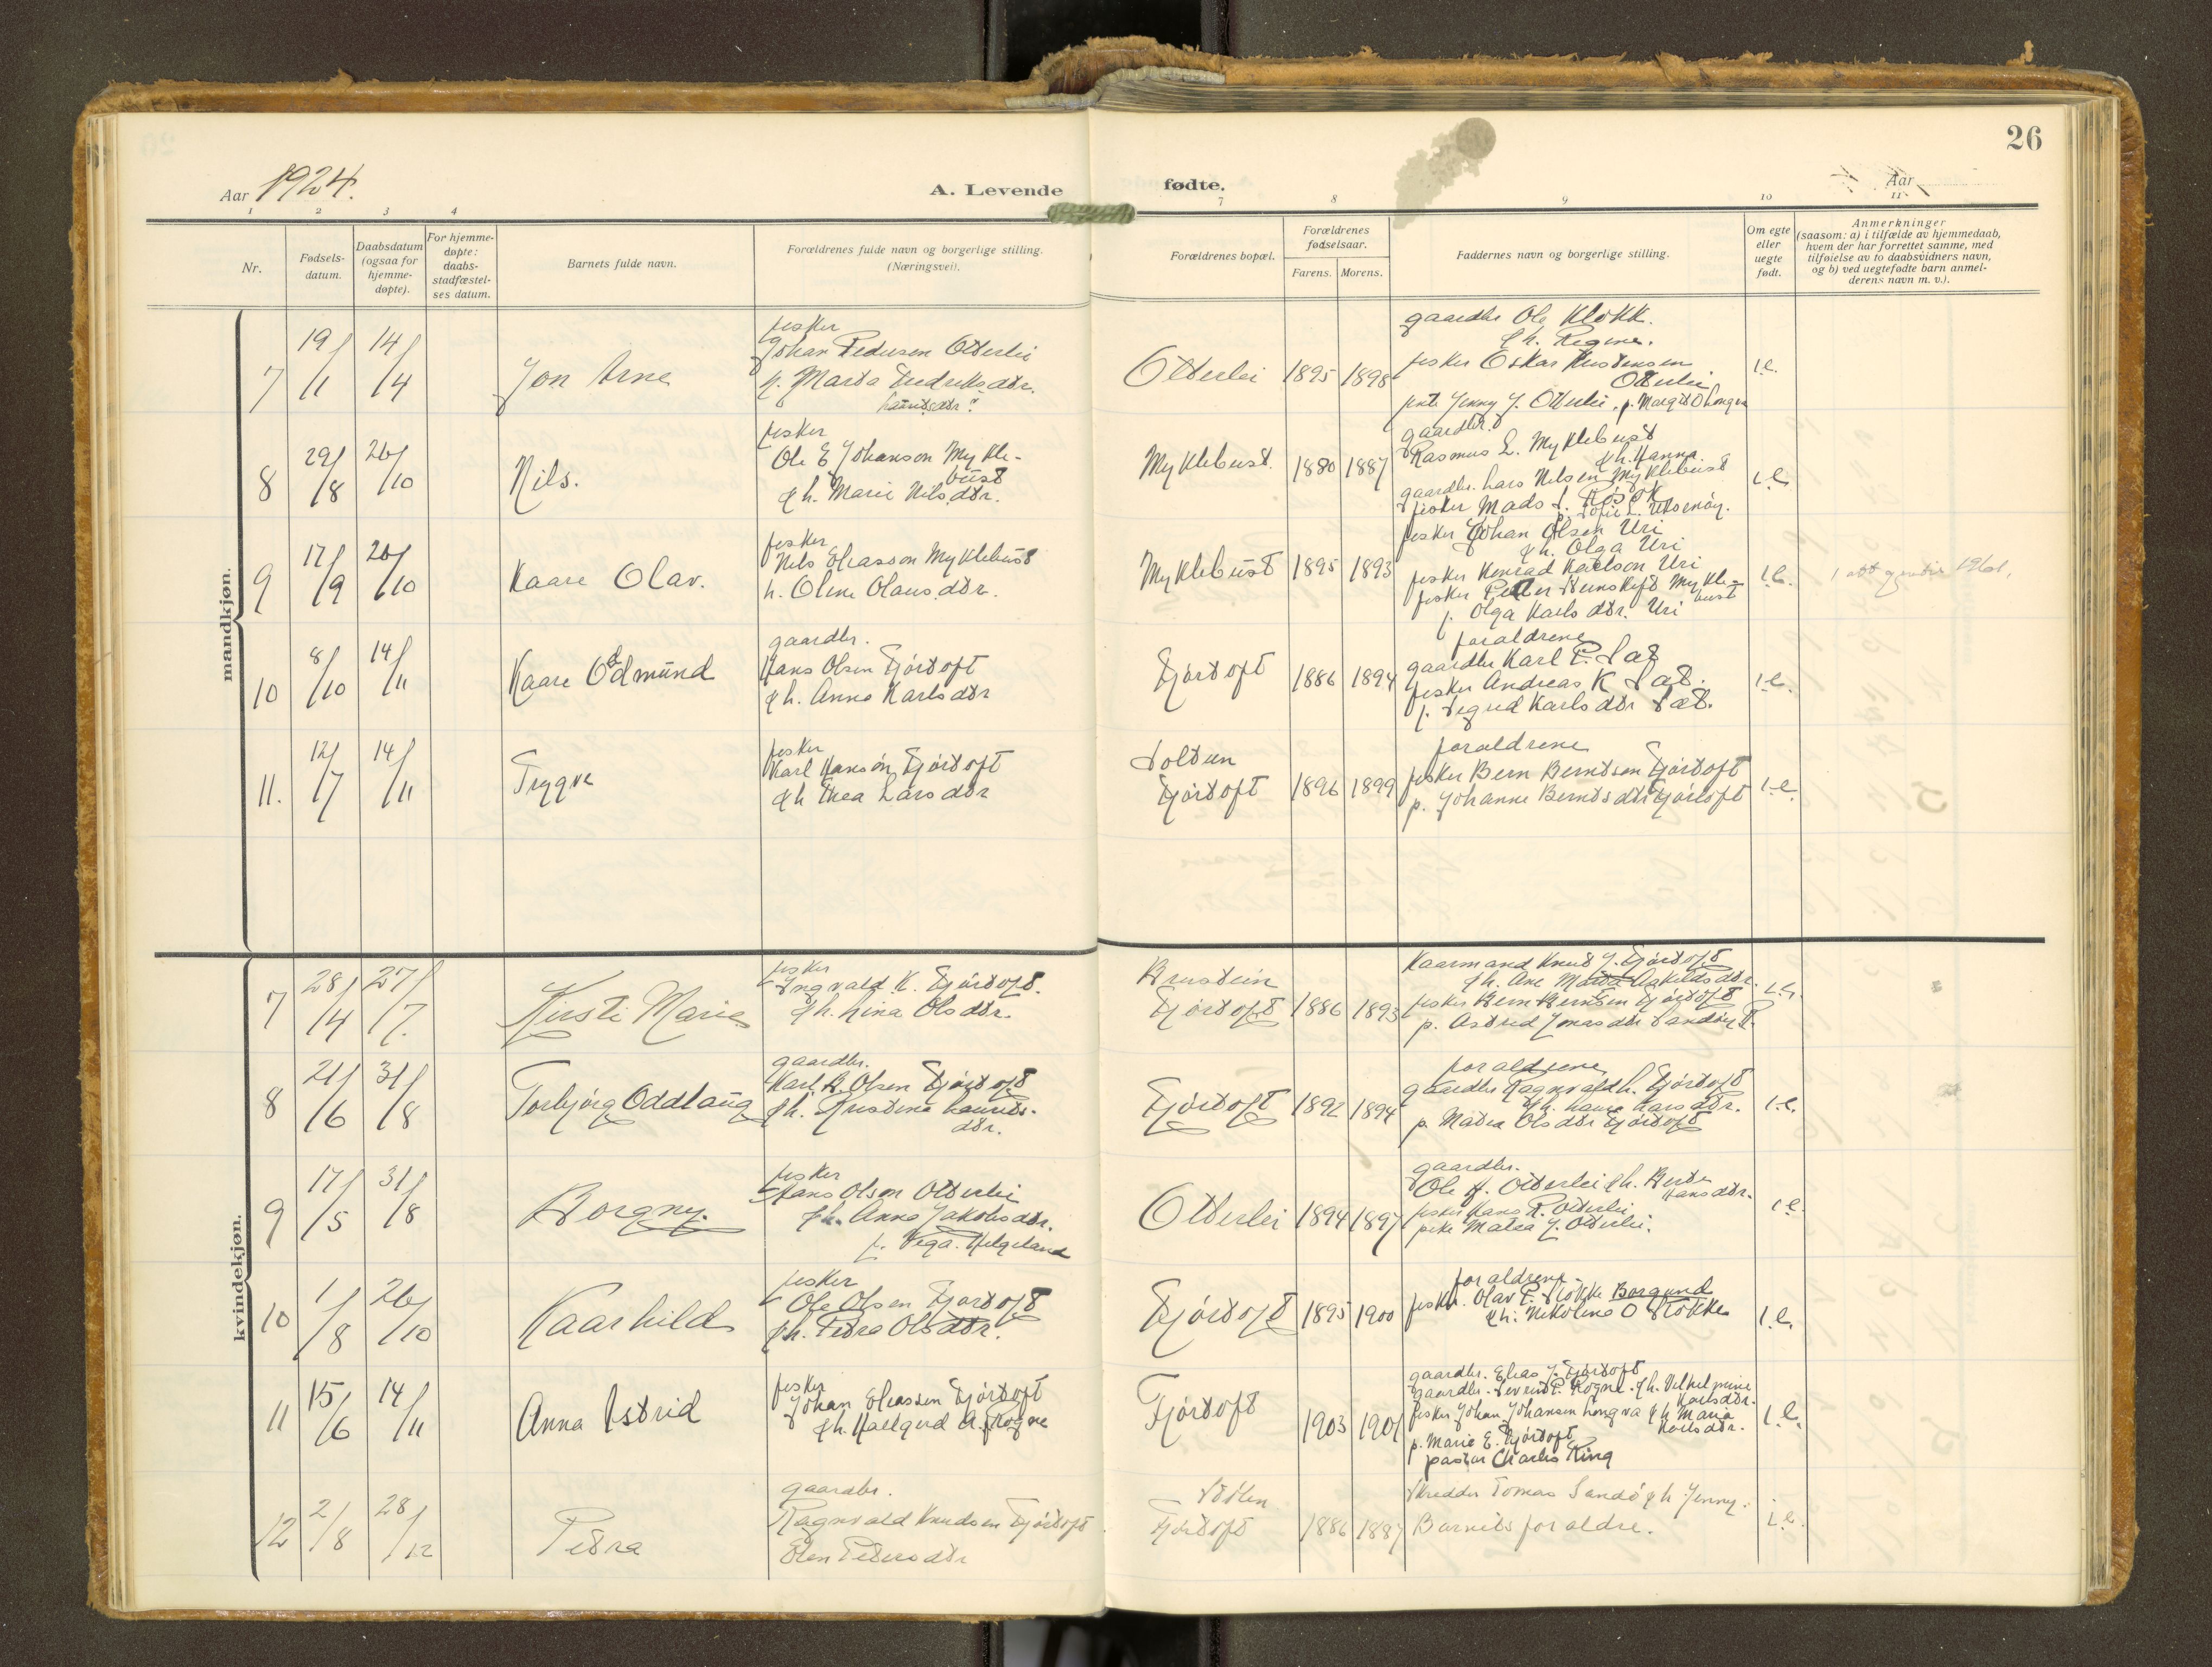 26
Aar 1924.
A. Levende
fødte.
Aar
1 2 3 4 7 8 9 10 11
Nr.
Fødsels-
datum.
Daabsdatum
(ogsaa for
hjemme-
døpte).
For hjemme-
døpte:
daabs-
stadfæstel-
ses datum.
Barnets fulde navn.
Forældrenes fulde navn og borgerlige stilling.
(Næringsvei).
Forældrenes bopæl.
Forældrenes
fødselsaar.
Farens. Morens.
Faddernes navn og borgerlige stilling.
Om egte
eller
uegte
født.
Anmerkninger
(saasom: a) i tilfælde av hjemmedaab,
hvem der har forrettet samme, med
tilføielse av to daabsvidners navn,
og b) ved uegtefødte barn anmel-
derens navn m. v.).
mandkjøn.
7
19/1
14/4
Jon Arne
fisker
Johan Pedersen Otterlei
h. Marta Fredriksdtr.
Otterlei
1895 1898
gaardbr Ole Klokk.
& h. Regine.
fisker Oskar
Otterlei
Jenny J. Otterlei, p. Margit O Longva
i.e.
8
29/8
26/10
Nils.
fisker
Ole E Johanson Mykle-
bust
& h. Marie Nilsdtr.
Myklebust.
1880 1887
gaardbr.
Rasmus L. Myklebust
& h. Hanna.
gaardbr. Lars Nilsen Myklebust
fisker Mads S. Røsok
p. Sofie L. Uksenøy.
i.e.
9
17/9
26/10
Kaare Olav.
fisker
Nils Eliasson Myklebust
h. Oline Olausdtr.
Myklebust
1895 1893
fisker Johan Olsen Uri
& h. Olga Uri
fisker Konrad Karlson Uri
fisker Peder Mykle-
bust
p. Olga Karlsdtr. Uri
i.e.
1961.
10
8/10
14/11
Kaare Odmund
gaardbr.
Hans Olsen Fjørtoft
& h. Anna Karlsdtr
Fjørtoft
1886 1894
foraldrene
gaardbr Karl P. Sat
fisker Andreas K Sat.
p. Sigrid Karlsdtr Sat.
i.e.
11.
12/7
14/11
Trygve
fisker
Karl Hansøn Fjørtoft
& h Thea Larsdtr
Fjørtoft
1896 1899
foraldrene
fisker Bern Berntsen Fjørtoft
p. Johanne Berntsdtr Fjørtoft
i.e.
kvindekjøn.
7
28/4
27/7.
Kirsti Marie
fisker
Ingvald K. Fjørtoft.
& h. Lina Olsdtr.
Fjørtoft
1886 1893
Kaarmand Knut J. Fjørtoft
& h. Ane Marta Askildsdtr.
fisker Bern Berntsen Fjørtoft
p. Astrid Jonasdtr Sandøy P.
i.e.
8
21/6
31/8
Torbjørg Oddlaug
gaardbr.
Karl A. Olsen Fjørtoft
& h. Kristina Laurits-
dtr.
Fjørtoft
1892 1894
foraldrene
gaardbr Ragnvald K. Fjørtoft
& h. Larsdtr.
p. Matea Olsdtr Fjørtoft
i.e.
9
17/5
31/8
Borgny.
fisker
Hans Olson Otterlei
& h. Anna Jakobsdtr.
f. Vega. Helgeland
Otterlei
1894 1897
gaardbr.
Ole H. Otterlei & h. Berte
Hansdtr.
fisker Hans R. Otterlei
Matea J. Otterlei.
i.e.
10
1/8
26/10
Kaarhild
fisker
Ole Olsen Fjørtoft
& h. Petra Olsdtr.
Fjørtoft
1895 1900
foraldrene
fisker. Olav P. Stokke Borgund
& h. Nikoline O Stokke
i.e.
11
15/6
14/11
Anna Astrid
fisker
Johan Eliassen Fjørtoft
& h. Hallgerd A. Rogne
Fjørtoft
1903 1901
gaardbr. Elias J. Fjørtoft
gaardbr. Severin P. Rogne. & h. Vilhelmine
Karlsdtr.
fisker Johan Johansen Longva & h Maria
Karlsdtr.
p. Marie E. Fjørtoft
pastor Charles Ring
i.e.
12
2/8
28/12
Petra
gaardbr.
Ragnvald Knudsen Fjørtoft
Elen Petersdtr
Fjørtoft
1886 1887
Skredder Tomas Sandø & h Jenny.
Barnets foraldre.
i.e.